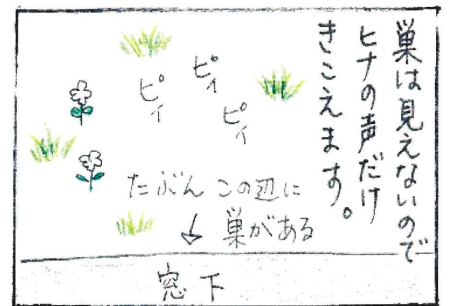 巣は見えないので
ヒナの声だけ
きこえます。
ピィ
ピィ
ピィ
たぶんこの辺に
↓巣がある
窓下